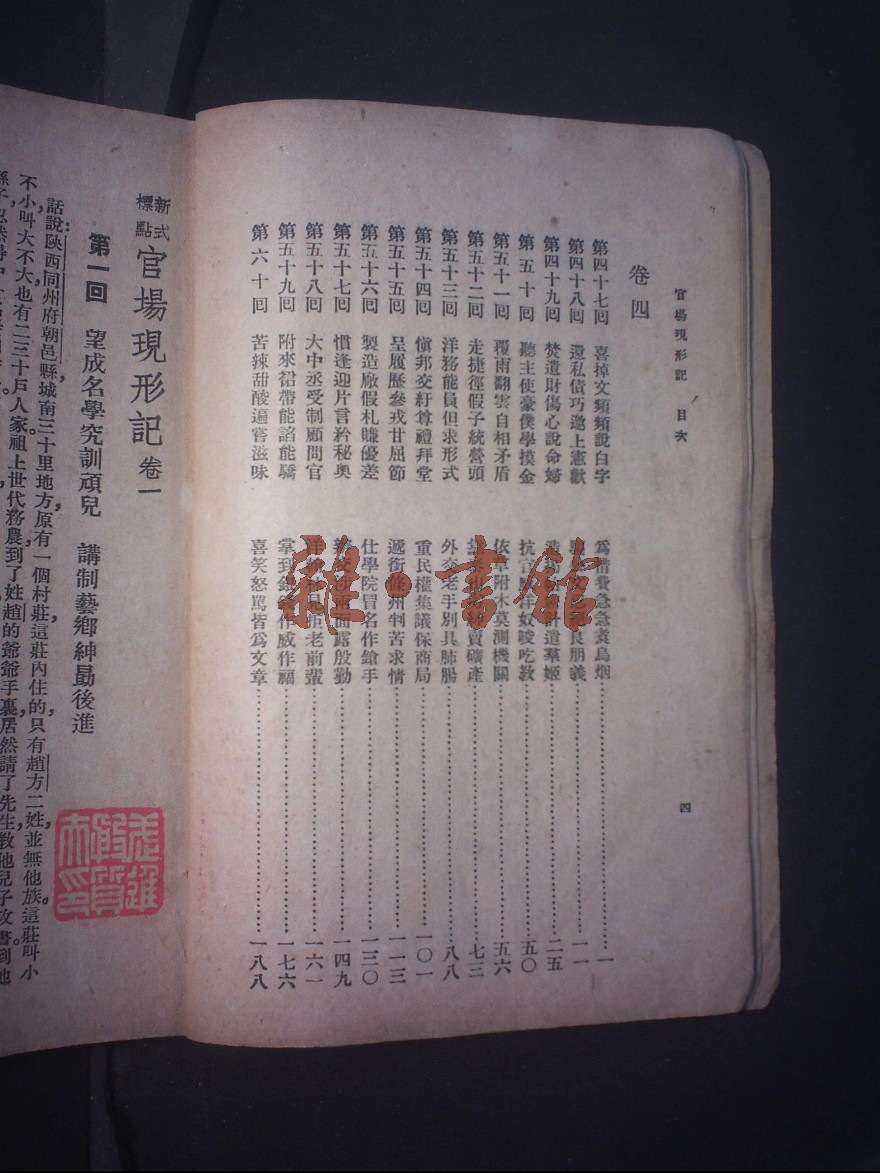 官場現形記 目次
四
卷四
第四十七回 喜掉文頻頻說白字 爲惜費急急煑烏烟……一
第四十八回 還私債巧邀上憲歡 良朋義……一一
第四十九回 焚遺財傷心說命婦 計遣羣姬……二五
第五十回 聽主使豪僕學摸金 抗官洋奴唆吃教……五〇
第五十一回 覆雨翻雲自相矛盾 依草附木莫測機關……五六
第五十二回 走捷徑假子統營頭 賣礦產……七三
第五十三回 洋務能員但求形式 外交老手別具肺腸……八八
第五十四回 愼邦交紆尊禮拜堂 重民權集議保商局……一〇一
第五十五回 呈履歷參戎甘屈節 遞銜條州判苦求情……一一三
第五十六回 製造廠假札賺優差 仕學院冒名作鎗手……一三〇
第五十七回 慣逢迎片言矜秘奧 兩面露殷勤……一四九
第五十八回 大中丞受制顧問官 見拒老前輩……一六一
第五十九回 附來裙帶能諂能驕 掌到銀錢作威作福……一七六
第六十回 苦辣甜酸遍嘗滋味 喜笑怒罵皆爲文章……一八八
雜·書館
新式標點 官場現形記 卷一
第一回 望成名學究訓頑兒 講制藝鄉紳勗後進
話說陝西同州府朝邑縣城南三十里地方原有一個村莊這莊內住的只有趙方二姓，並無他族。這莊叫小
不小，叫大不大，也有二三十戶人家。祖上世代務農。到了姓趙的爺爺手裏，居然請了先生，教他兒子攻書。到他